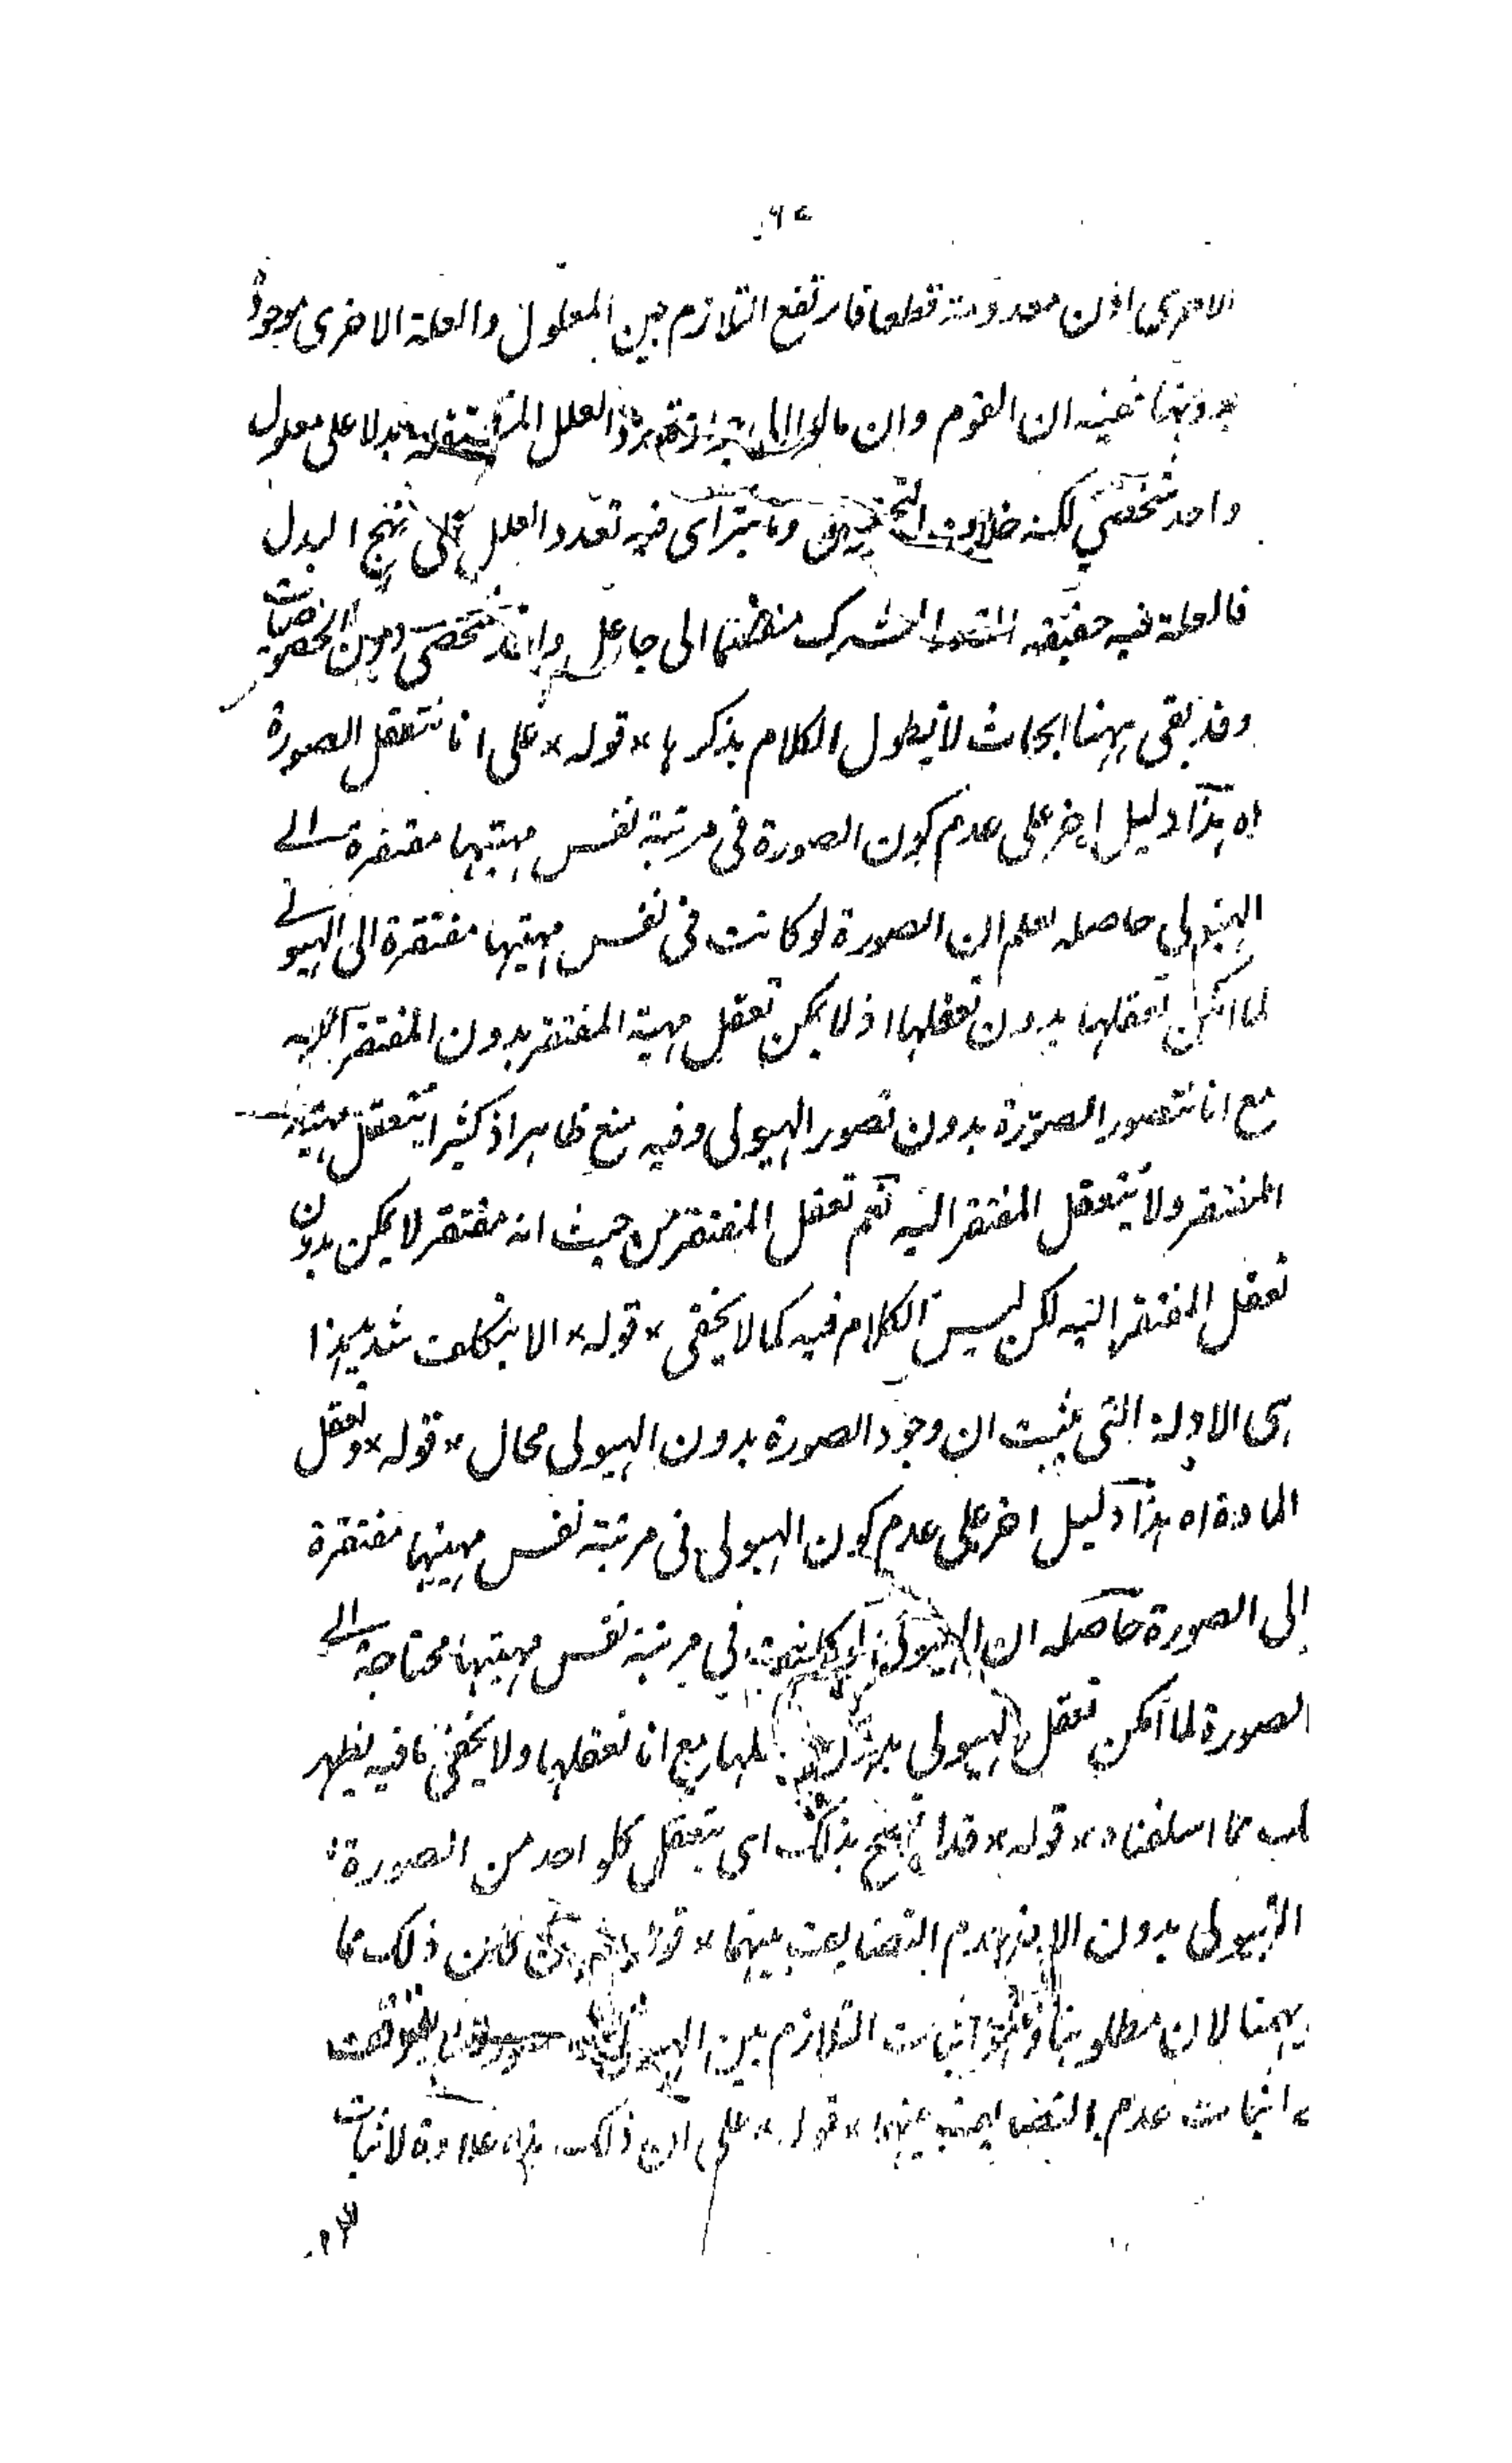 الاخرى اذن معدومة قطعا فارتفع التلازم بين المعلول والعلة الاخرى موجودة
بدونها ففيه ان القوم وان مالوا الى العلل بدلا على معلول
واحد شخصي لكنه خلاف التحقيق وما يترااى فيه تعدد العلل على نهج البدل
فالعلة فيه حقيقة القدر المشترك منضما الى جاعل واحد شخصي دون الخصوصيات
وقد بقى ههنا ابحاث لا يطول الكلام بذكرها * قوله * على انا نتعقل الصورة
اه هذا دليل اخر على عدم كون الصورة فى مرتبة نفس مهيتها مفتقرة الے
الهيولى حاصله لعلم ان الصورة لو كانت فى نفس مهيتها مفتقرة الى الهيولے
لما امكن تعقلها بدون تعقلها اذ لا يمكن تعقل مهية المفتقر بدون المفتقر اليه
مع انا نتصور الصورة بدون تصور الهيولى وفيه منع ظاهر اذ كثيرا يتعقل مهية
المفتقر ولا يتعقل المفتقر اليه نعم تعقل المفتقر من حيث انه مفتقر لا يمكن بدون
تعقل المفتقر اليه لكن ليس الكلام فيه كما لا يخفى * قوله * الا بتكلف شديد هذا
هى الادلة التى يثبت ان وجود الصورة بدون الهيولى محال * قوله * وتعقل
المادة اه هذا دليل اخر على عدم كون الهيولى فى مرتبة نفس مهيتها مفتقرة
الى الصورة حاصله ان الهيولى لو كانت فى مرتبة نفس مهيتها محتاجة الے
الصورة لما امكن تعقل الهيولى بدون تعقلها مع انا نعقلها ولا يخفى ما فيه يظهر
لك مما اسلفناه * قوله * فدا بذلك اى يتعقل كلواحد من الصورة و
الهيولى بدون الاخر عدم التضايف بينهما * قوله * كان ذلك مما
يهمنا لان مطلوبنا وهو اثبات التلازم بين الهيولى والصورة يتوقف
على اثبات عدم التضايف بينهما * قوله * على ان ذلك هذه علاوة لاثبات